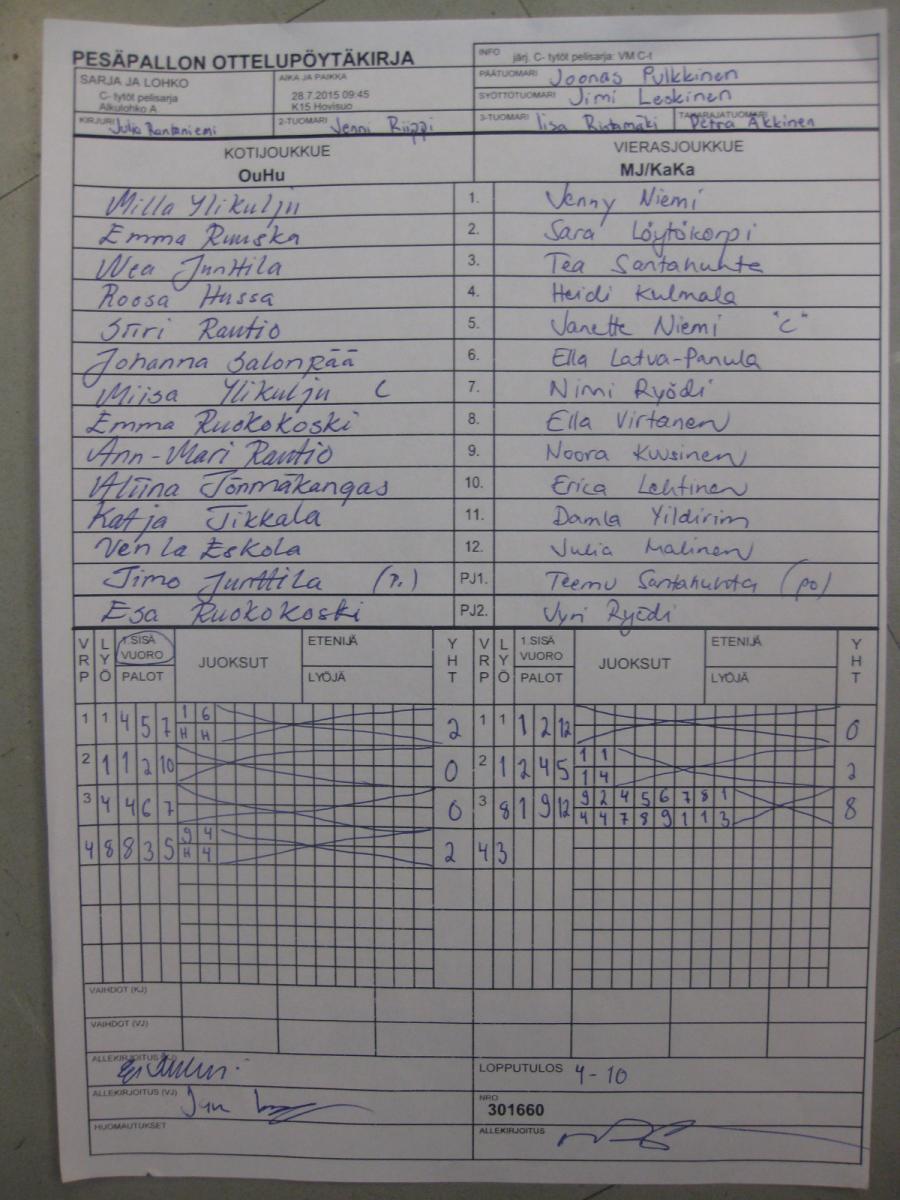 PESÄPALLON OTTELUPÖYTÄKIRJA
INFO järj. C- tytöt pelisarja: VM C-t
SARJA JA LOHKO
C- tytöt pelisarja
Alkulohko A
AIKA JA PAIKKA
28.7.2015 09:45
K15 Hovisuo
PÄÄTUOMARI Joonas Pulkkinen
SYÖTTÖTUOMARI Jimi Leskinen
KIRJURI Julia Rantaniemi
2-TUOMARI Jenni Riippi
3-TUOMARI Iisa Rintamäki
TAKARAJATUOMARI Petra Akkinen
KOTIJOUKKUE VIERASJOUKKUE
OuHu MJ/KaKa
Milla Ylikulju 1. Jenny Niemi
Emma Ruuska 2. Sara Löytökorpi
Nea Junttila 3. Tea Santahuhta
Roosa Hussa 4. Heidi Kulmala
Siiri Rautio 5. Janette Niemi "C"
Johanna Salonpää 6. Ella Latva-Panula
Miisa Ylikulju C 7. Ninni Ryödi
Emma Ruokokoski 8. Ella Virtanen
Ann-Mari Rautio 9. Noora Kuusinen
Aliina Jonmäkangas 10. Erica Lehtinen
Katja Tikkala 11. Damla Yildirim
Venla Eskola 12. Julia Malinen
Timo Junttila (p.) PJ1. Teemu Santahuhta (po)
Esa Ruokokoski PJ2. Jyri Ryödi
VRP LYÖ 1.SISÄ VUORO PALOT JUOKSUT ETENIJÄ LYÖJÄ YHT VRP LYÖ 1.SISÄ VUORO PALOT JUOKSUT ETENIJÄ LYÖJÄ YHT
1 1 4 5 7 1 6 2 1 1 1 2 12 0
H H
2 1 1 2 10 0 2 1 2 4 5 1 1 2
1 4
3 4 4 6 7 0 3 8 1 9 12 9 2 4 5 6 7 8 1 8
4 4 7 8 9 1 1 3
4 8 8 3 5 9 4 2 4 3
H 4
VAIHDOT (KJ)
VAIHDOT (VJ)
ALLEKIRJOITUS (KJ)
LOPPUTULOS 4-10
ALLEKIRJOITUS (VJ)
NRO
301660
HUOMAUTUKSET
ALLEKIRJOITUS